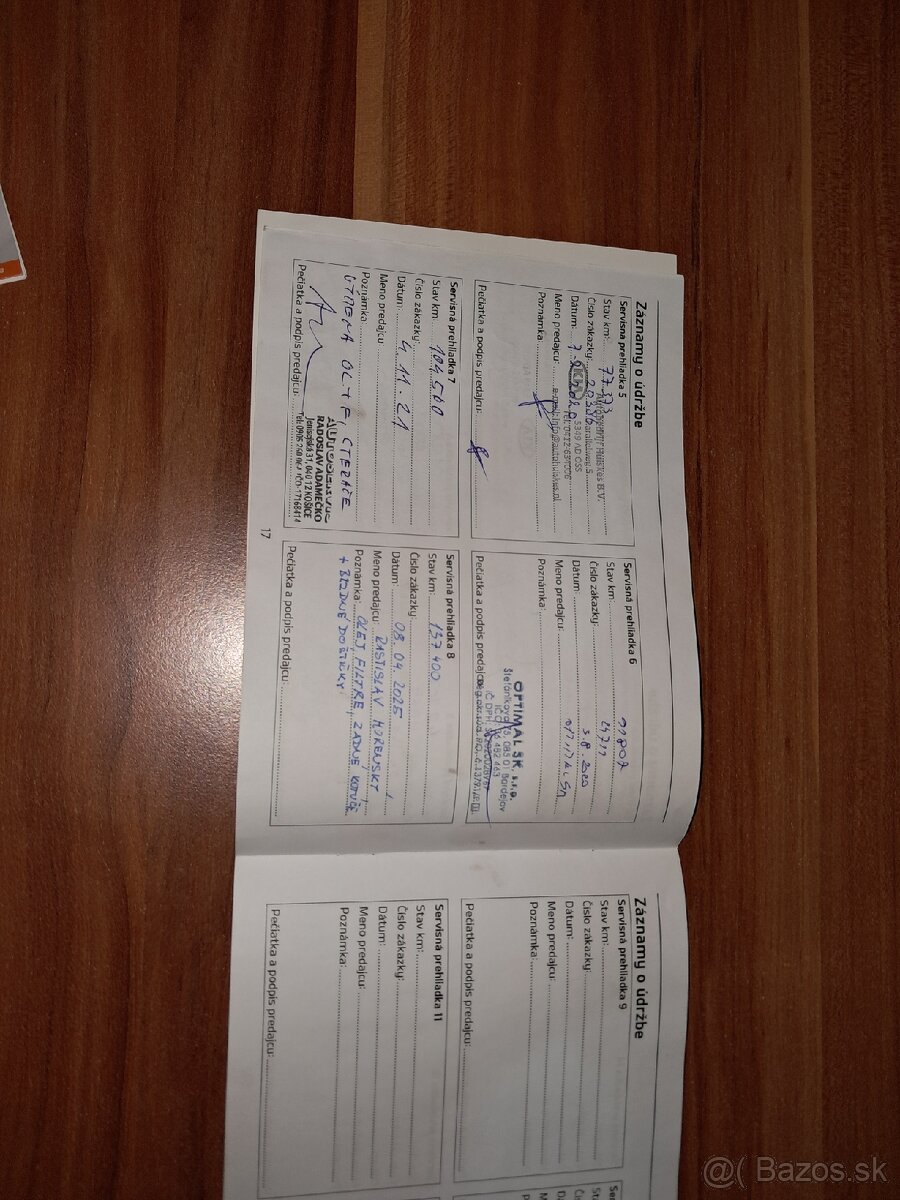 Záznamy o údržbe
Servisná prehliadka 5
Stav km: 77.373
Číslo zákazky:
Dátum:
Meno predajcu:
Poznámka:
Pečiatka a podpis predajcu:
Servisná prehliadka 6
Stav km:
Číslo zákazky:
Dátum: 3.8.2020
Meno predajcu: OPTIMAL SK
Poznámka:
Pečiatka a podpis predajcu:
OPTIMAL SK s.r.o.
085 01 Bardejov
Servisná prehliadka 7
Stav km: 104500
Číslo zákazky:
Dátum: 4.11.21
Meno predajcu:
Poznámka:
Pečiatka a podpis predajcu:
RADOSLAV ADAMEČKO
040 12 KOŠICE
Servisná prehliadka 8
Stav km: 137 400
Číslo zákazky:
Dátum: 08.04.2025
Meno predajcu: RASTISLAV
Poznámka: OLEJ, FILTRE, ZADNÉ
+ BRZDNE DOŠTIČKY
Pečiatka a podpis predajcu:
17
Záznamy o údržbe
Servisná prehliadka 9
Stav km:
Číslo zákazky:
Dátum:
Meno predajcu:
Poznámka:
Pečiatka a podpis predajcu:
Servisná prehliadka 11
Stav km:
Číslo zákazky:
Dátum:
Meno predajcu:
Poznámka:
Pečiatka a podpis predajcu:
@( Bazos.sk